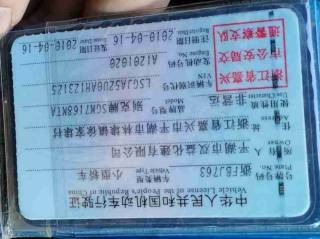 中华人民共和国机动车行驶证
Vehicle License of the People's Republic of China
号牌号码 浙FBJ763 车辆类型 小型轿车
Plate No. Vehicle Type
所有人 平湖双益化建有限公司
Owner
住址 浙江省嘉兴市平湖市林埭镇徐家埭村
Address
使用性质 非营运 品牌型号 别克牌SGM7169MTA
Use Character Model
浙江省嘉兴
市公安局交
通警察支队
车辆识别代号 LSGJA52U0AH123125
VIN
发动机号码 A1201020
Engine No.
注册日期 2010-04-16 发证日期 2010-04-16
Register Date Issue Date